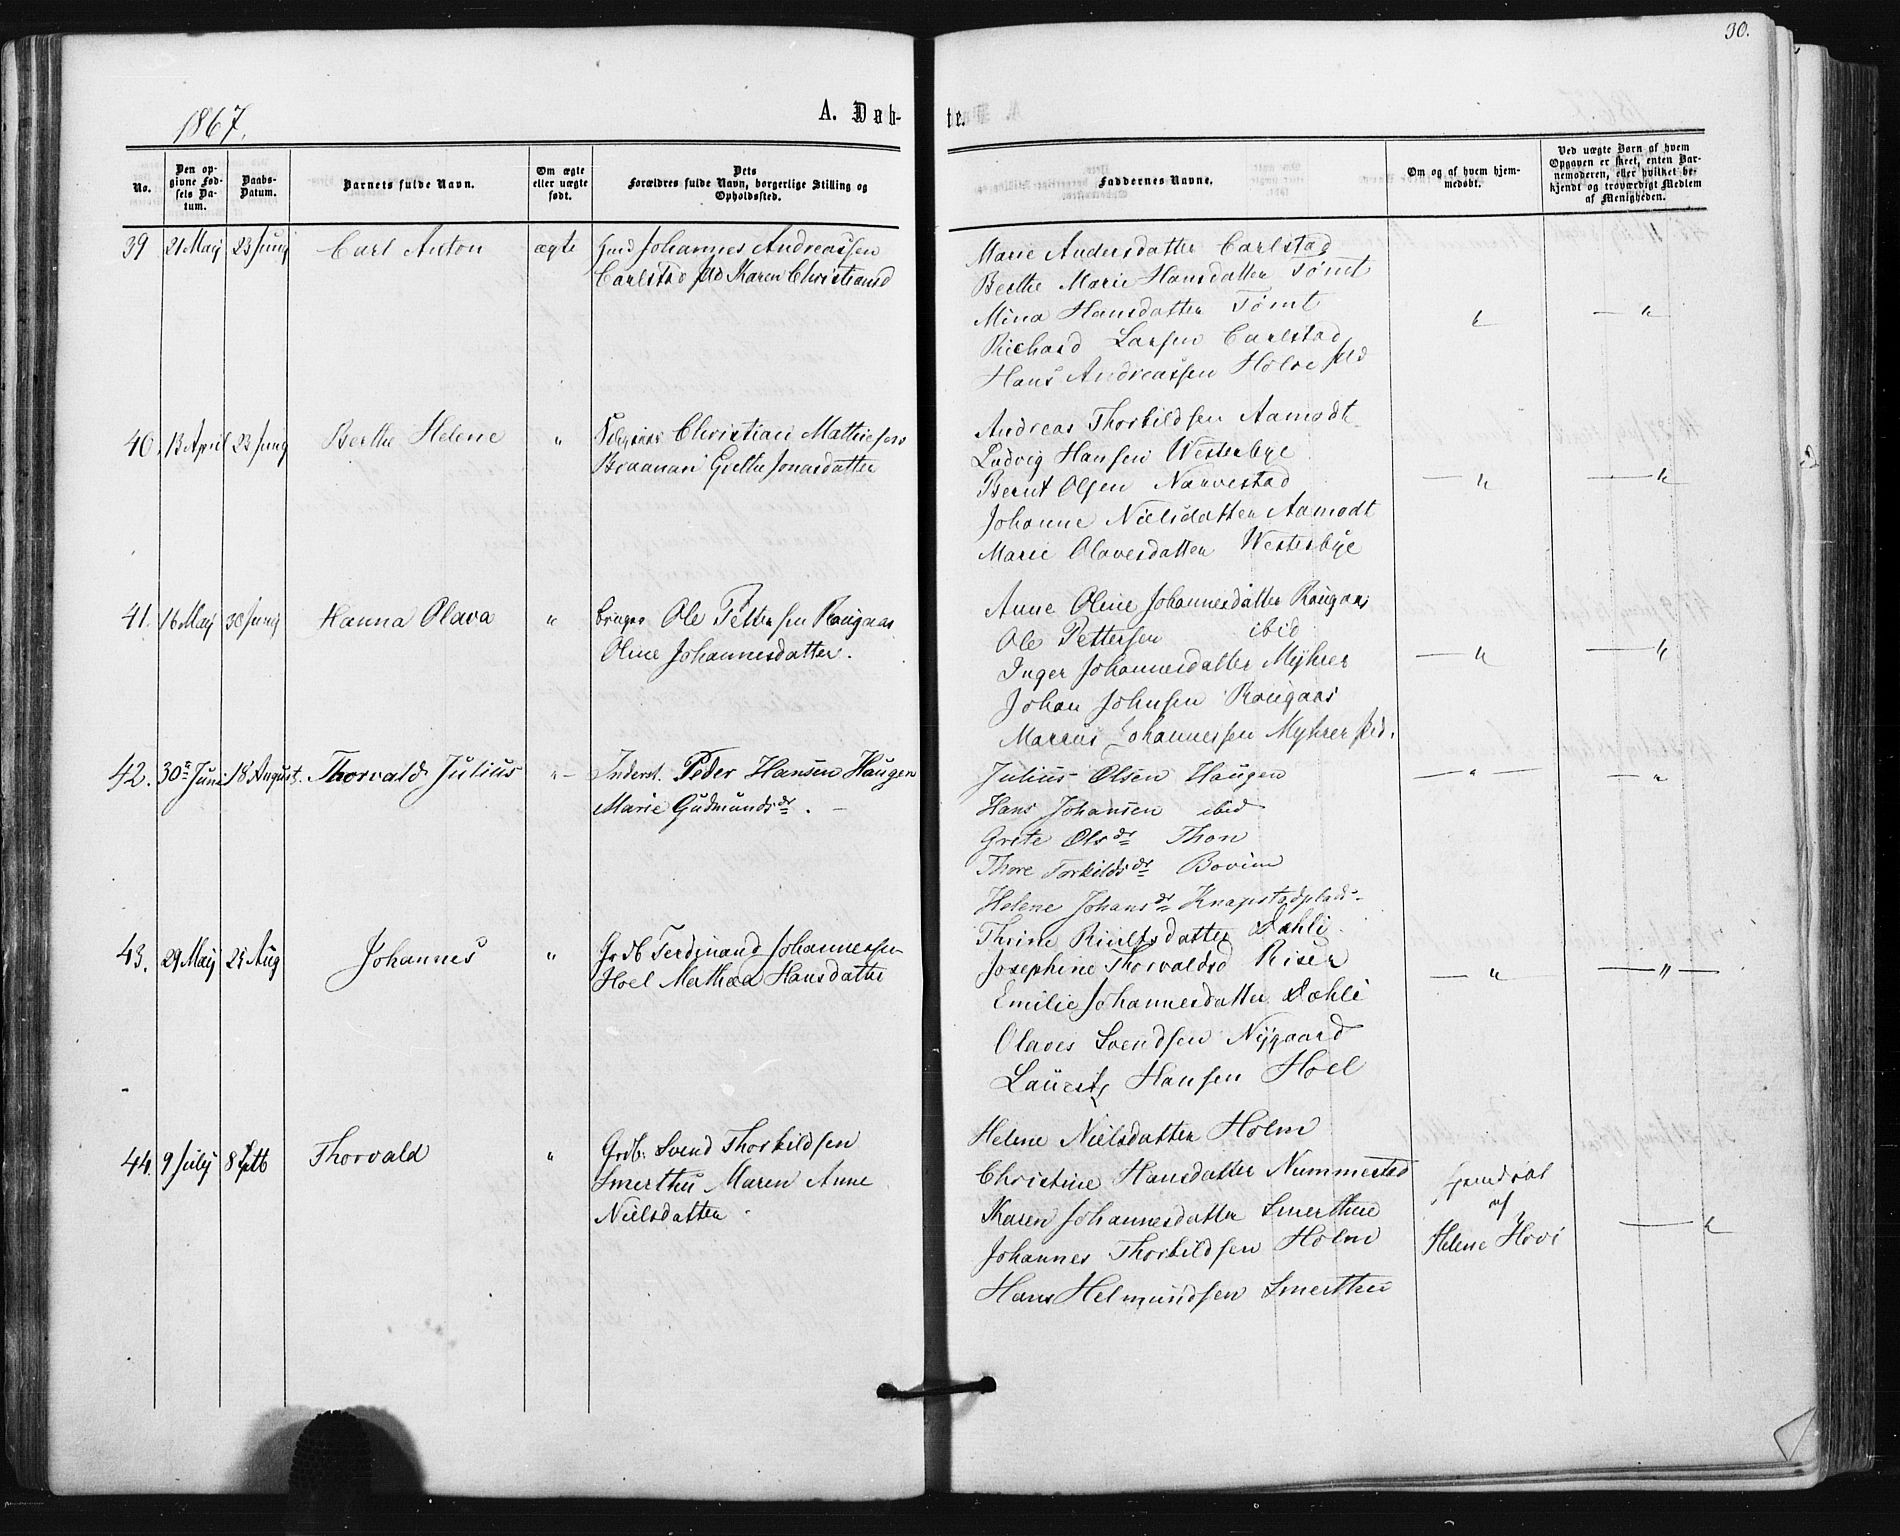 30.
1867.
A. Døb-
te.
No.
Den op-
givne Fød-
sels Da-
tum.
Daabs-
Datum.
Barnets fulde Navn.
Om ægte
eller uægte
født.
Dets
Forældres fulde Navn, borgerlige Stilling og
Opholdssted.
Faddernes Navne.
Om og af hvem hjem-
medøbt.
Ved uægte Børn af hvem
Opgaven er skeet, enten Bar-
nemoderen, eller hvilket be-
kjendt og troværdigt Medlem
af Menigheden.
39 21 Maij 23 Junij Carl Anton ægte Johannes Andreassen
Carlstad Karen Christiansd
Marie Andersdatter Carlstad
Berthe Marie Hansdatter Tømt
Mina Hansdatter Tømt
Richard Larsen Carlstad
Hans Andreassen Holm
40. 13 April 23 Junij Berthe Helene " Christian Mathiesen
Braanan Grethe Jonasdatter
Andreas Thorkildsen Aamodt
Ludvig Hansen Westerbye
Bernt Olsen Narvestad
Johanne Nielsdatter Aamodt
Marie Olavesdatter Westerbye
41. 16 Maij 30 Junij Hanna Olava " bruger Ole Pettersen Raugaas
Oline Johannesdatter.
Anne Oline Johannesdatter Raugaas
Ole Pettersen ibid
Inger Johannesdatter Myhrer
Johan Johnsen Raugaas
Marcus Johannessen Myhrer
42. 30te Juni 18 August. Thorvald Julius "– Inderst. Peder Hansen Haugen
Marie Gudmundsdr. –
Julius Olsen Haugen
Hans Johansen ibid
Grete Olsdr Thon
Thore Torkildsdr Bovim
Helene Johansdr Knapstadplads.
43. 29 Maij 25 Aug Johannes " Grdb Ferdinand Johannessen
Hoel Mathea Hansdatter
Thrine datter Dæhli
Josephine Thorvaldsd Risen
Emilie Johannesdatter Dæhli
Olaves Svendsen Nygaard
Lauritz Hansen Hoel
44. 9 Julij 8 Septb Thorvald " Grdb. Svend Thorkildsen
Smerthu Maren Anne
Nielsdatter.
Helene Nielsdatter Holm
Christine Hansdatter Nummestad
Karen Johannesdatter Smerthue
Johannes Thorkildsen Holm
Hans Helmundsen Smerthu
af
Helene Hovi